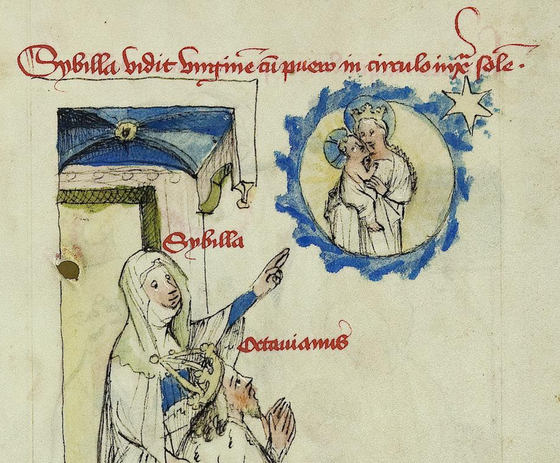 Sybilla vidit virginē cū puero in circulo iuxͣ solē.
Sybilla
Octauianus